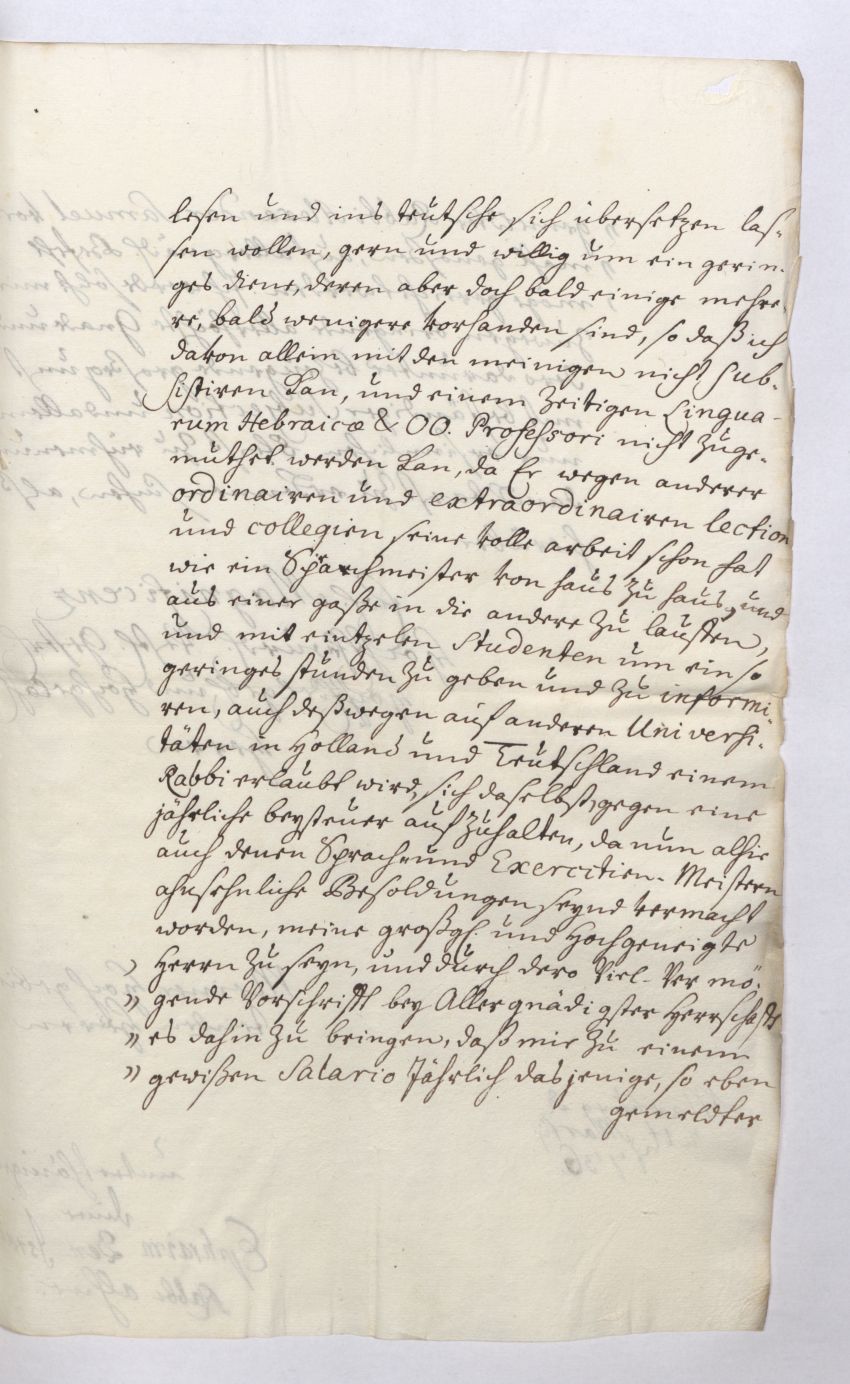 lesen und ins teutsche sich übersetzen las-
sen wollen, gern und willig um ein gerin-
ges diene, deren aber doch bald einige mehre-
re, bald wenigere vorhanden sind, so daß ich
davon allein mit den meinigen nicht sub-
sistiren kan, und einem zeitigen Lingua-
rum Hebraicæ & OO. Professori nicht zuge-
muthet werden kan, da Er wegen anderer
ordinairen und extraordinairen lection
und collegien seine volle arbeit schon hat
wie ein Sprachmeister von hauß zu hauß, und
aus einer gaße in die andere zu lauffen,
und mit eintzelen Studenten um ein so
geringes stunden zu geben und zu informi-
ren, auch deßwegen auf anderen Universi-
täten in Holland und Teutschland einem
Rabbi erlaubt wird, sich daselbst, gegen eine
jährliche beysteuer aufzuhalten, da nun alhie
auch denen Sprach- und Exercitien-Meistern
ahnsehnliche Besoldungen seynd vermacht
worden, meine großgh. und Hochgeneigte
" Herrn zu seyn, und durch dero Viel-Vermö-
" gende Vorschrifft bey Allergnädigster Herrschafft
" es dahin zu bringen, daß mir zu einem
" gewißen Salario Jährlich dasjenige, so eben
gemeldter